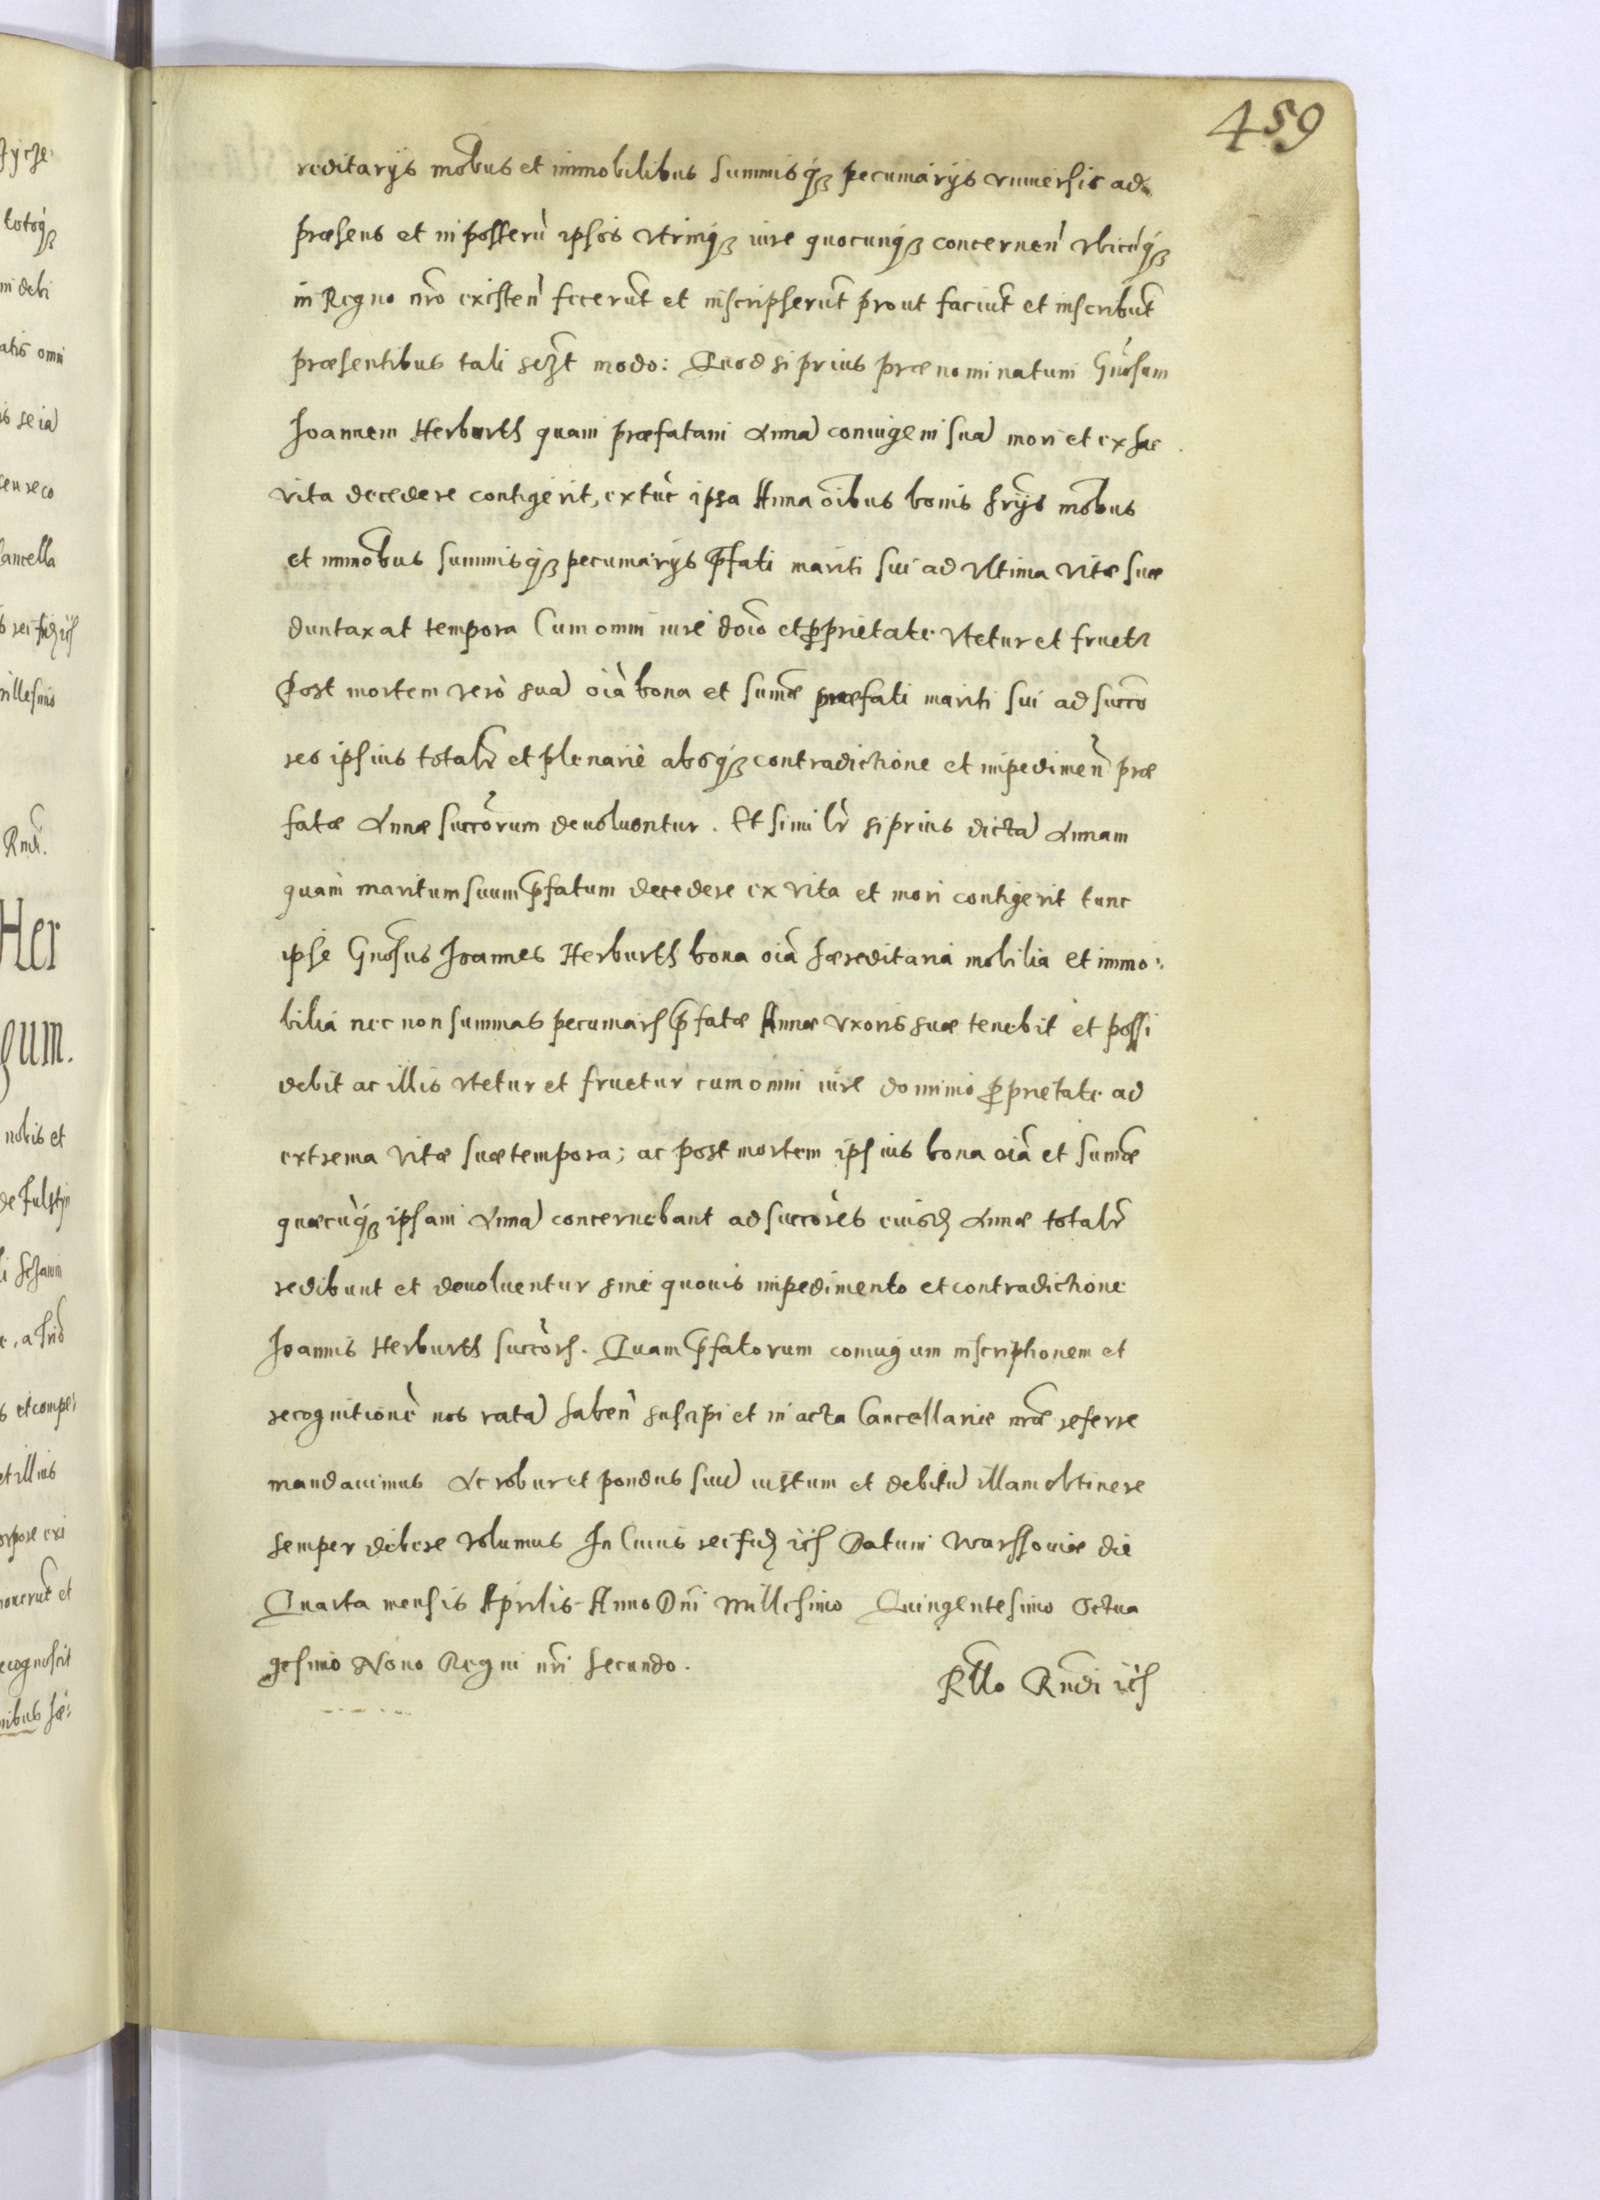 459
reditarijs mobus et immobilibus summisq3 pecuniarijs vniuersis ad
præsens et in posterũ ipsos vtrinq3 iure quocunq3 concernen vbicũq3
in Regno nro existen fecerũt et inscripserũt prout faciũt et inscribũt
præsentibus tali seqt modo: Quod si prius prænominatum Gnosum
Joannem Herburth quam præfatam Annã coniugem suã mori et ex hac
vita decedere contigerit, extũc ipsa Anna oibus bonis hrijs mobus
et immobus summisq3 pecuniarijs pfati mariti sui ad vltima vitæ suæ
duntaxat tempora Cum omni iure doio et pprietate vtetur et fruetr
Post mortem verò suã oiã bona et sumæ præfati mariti sui ad succo
res ipsius totalr et plenariè absq3 contradictione et impedimen præ
fatæ Annæ succorum deuoluontur. Et similr si prius dictã Annam
quàm maritum suum pfatum decedere ex vita et mori contigerit tunc
ipse Gnosus Joannes Herburth bona oiã hæreditaria mobilia et immo:
bilia nec non summas pecuniars pfatæ Annæ vxoris suæ tenebit et possi
debit ac illis vtetur et fruetur cum omni iure dominio pprietate ad
extrema vitæ suæ tempora; ac post mortem ipsius bona oiã et sumæ
quæcũq3 ipsam Annã concernebant ad succores eiusd Annæ totalr
redibunt et deuoluentur sine quouis impedimento et contradictione
Joannis Herburth succors. Quam pfatorum coniugum inscriptionem et
recognitionẽ nos ratã haben suscipi et in acta Cancellariæ nræ referre
mandauimus Ac robur et pondus suũ iustum et debitũ illam obtinere
semper debere volumus In Cuius rei fid etc Datum Warssouiæ die
Quarta mensis Aprilis Anno Dni Millesimo Quingentesimo Octua
gesimo Nono Regni nri secundo.
Rllo Rndi etc